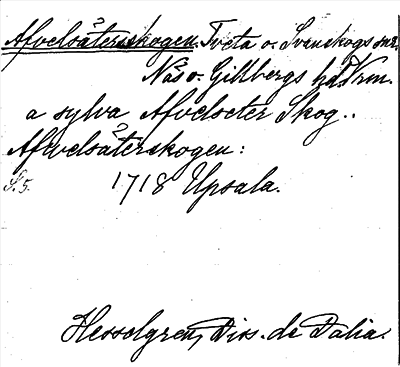 Afvelsäterskogen. Tveta o. Svanskogs snr.
Näs o. Gillbergs hd. Vrm.
a sylva Afvelseter Skog..
Afvelsåterskogen:
S. 5. 1718 Upsala.
Hesselgren, Diss. de Dalia.